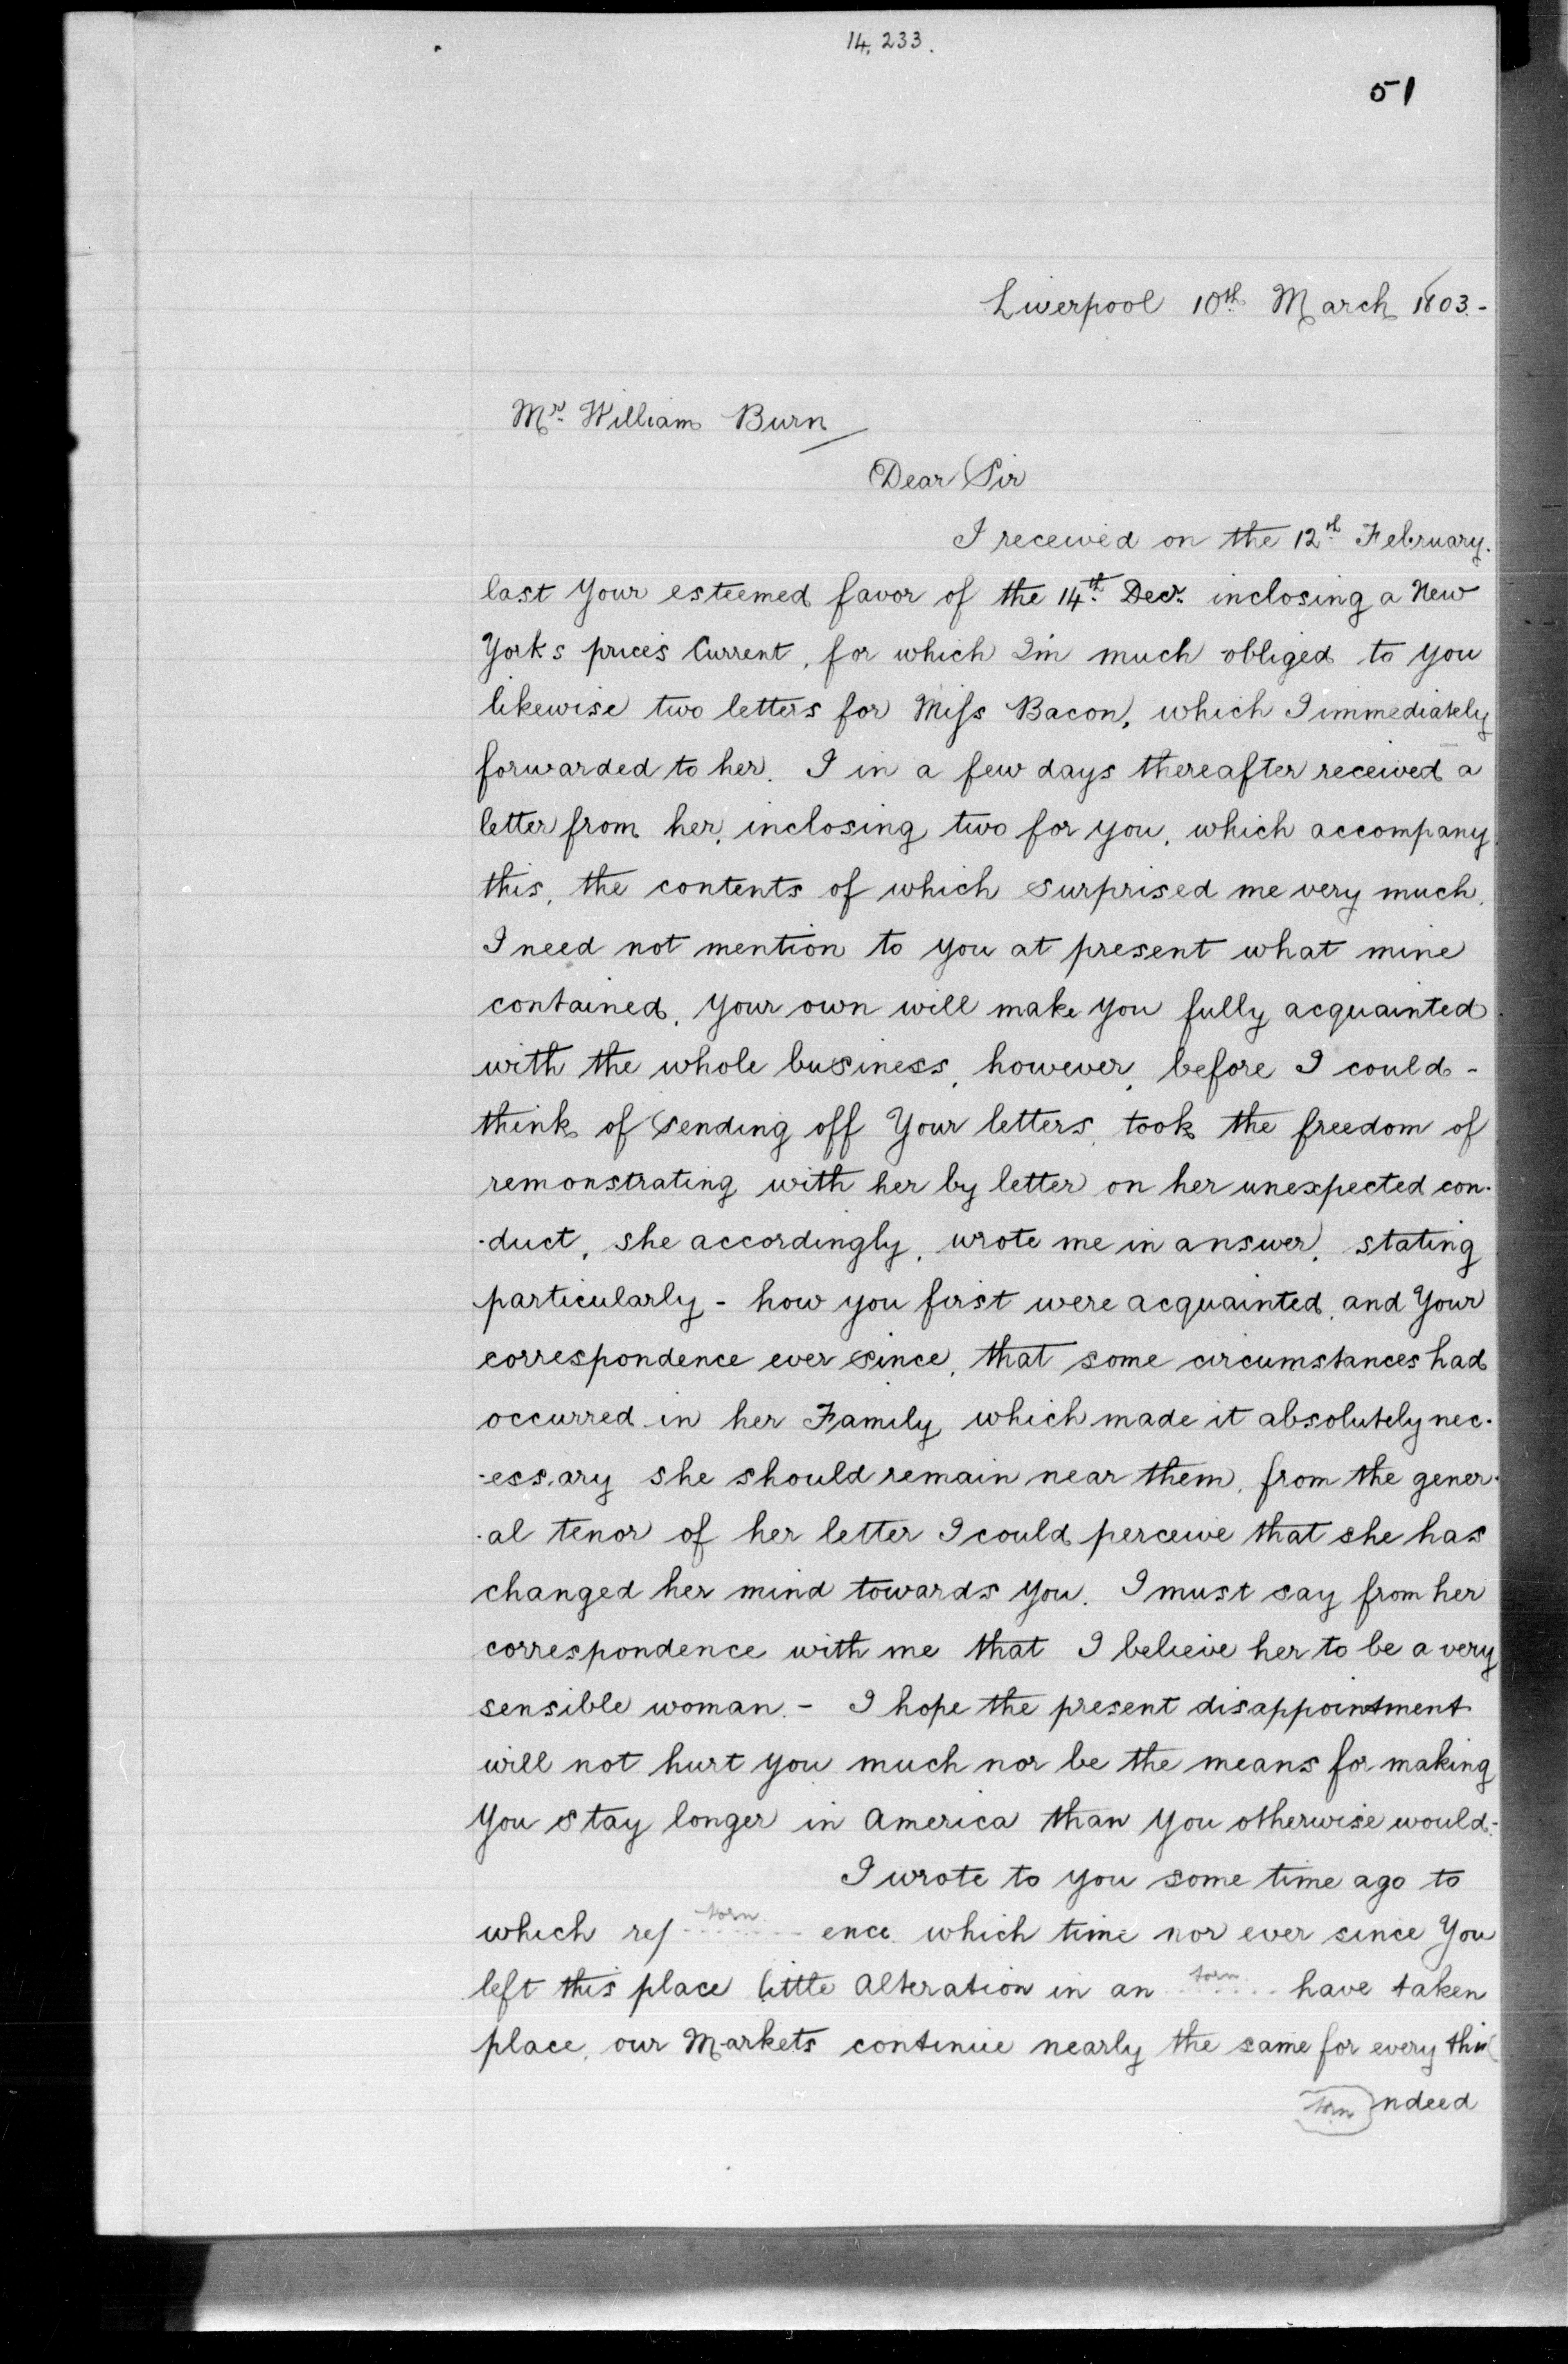 14,233.
51
Liverpool 10th March 1803.-
Mr. William Burn
Dear Sir
I received on the 12th February.
last Your esteemed favor of the 14th Decr. inclosing a New
Yorks prices Current, for which I'm much obliged to you
likewise two letters for Miſs Bacon, which I immediately
forwarded to her. I in a few days thereafter received a
letter from her, inclosing two for you, which accompany
this, the contents of which surprised me very much,
I need not mention to you at present what mine
contained, your own will make you fully acquainted
with the whole business, however, before I could -
think of sending off Your letters, took the freedom of
remonstrating with her by letter on her unexpected con-
-duct, she accordingly, wrote me in answer, stating
particularly - how you first were acquainted, and Your
correspondence ever since, that some circumstances had
occurred in her Family which made it absolutely nec-
-essary she should remain near them, from the gener-
-al tenor of her letter I could perceive that she has
changed her mind towards you. I must say from her
correspondence with me that I believe her to be a very
sensible woman. - I hope the present disappointment
will not hurt you much nor be the means for making
You stay longer in America than you otherwise would.-
I wrote to you some time ago to
which ref torn ence which time nor ever since You
left this place little Alteration in an torn have taken
place, our Markets continue nearly the same for every thin
torn ndeed